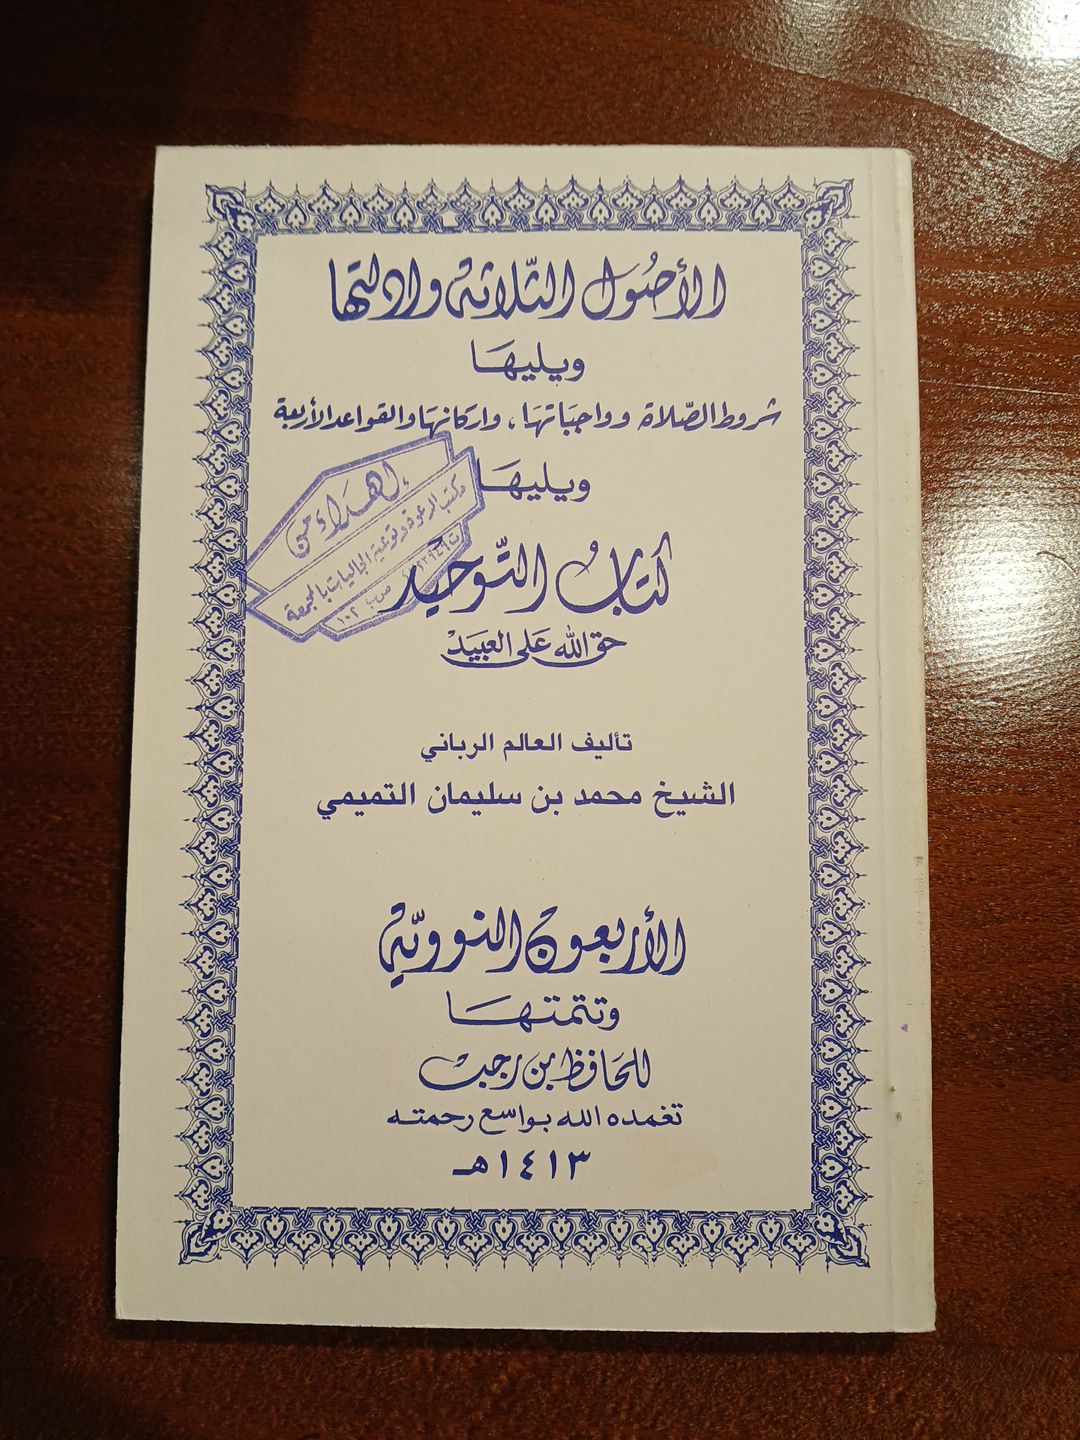 الأصُول الثّلاثة وادلتها
ويليهَا
شروط الصّلاة وواجبَاتهَا، واركانهَا والقواعد الأربعة
ويليهَا
كتابُ التّوحيد
حق الله عَلى العبَيدْ
إهدَاء من
مكتب الدعوة وتوعية الجاليات بالمجمعة
ص.ب ١٠٢
تأليف العالم الرباني
الشيخ محمد بن سليمان التميمي
الأربعون النوويّة
وتتمتهَا
للحَافظ بن رجب
تغمده الله بواسع رحمته
١٤١٣هـ